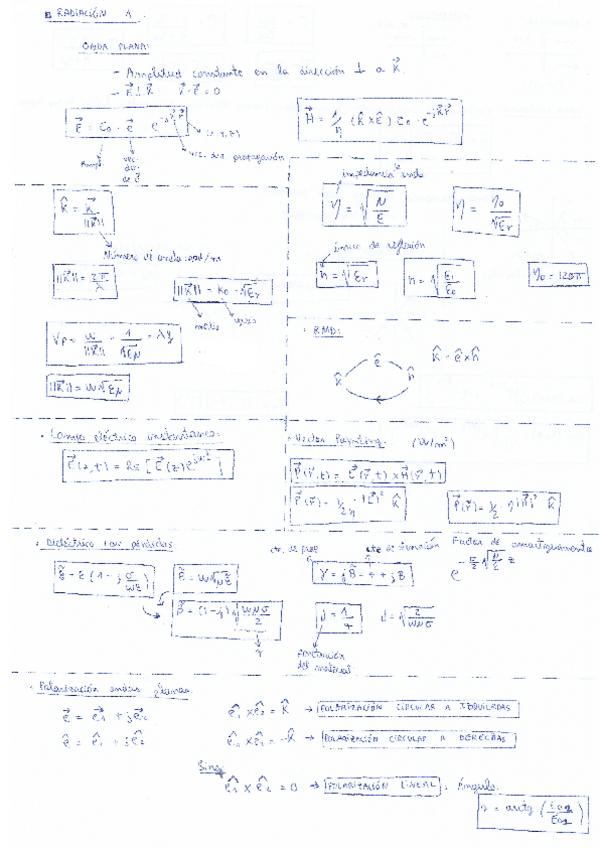 RADIACIÓN 1
ONDA PLANA:
- Amplitud constante en la dirección ⊥ a K⃗.
- E⃗ ⊥ K⃗ K⃗·E⃗ = 0
E⃗ = E₀ · ê e^{-jK⃗r⃗}
(x,y,z)
vec. dir. propagación
Ampl.
vec. dir. de E⃗
H⃗ = 1/η (K̂ x ê) E₀ · e^{-jK⃗r⃗}
K̂ = K⃗/||K⃗||
Número de onda: rad/m
||K⃗|| = 2π/λ
||K⃗|| = K₀ · √εr
medio
vacío
Vp = w/||K⃗|| = 1/√εμ = λf
||K⃗|| = w√εμ
impedancia onda
η = √(μ/ε)
η = η₀/√εr
índice de reflexión
n = √εr
n = √(ε₁/ε₀)
η₀ = 120π
· RMD:
ê
K̂
ĥ
K̂ = ê x ĥ
· Campo eléctrico instantáneo:
E⃗(z,t) = Re [E⃗(z) e^{jwt}]
· Vector Poynting (W/m²)
P⃗(r⃗,t) = E⃗(r⃗,t) x H⃗(r⃗,t)
P⃗(r⃗) = 1/2η |E⃗|² K̂
P⃗(r⃗) = 1/2 · η |H⃗|² K̂
· Dieléctrico con pérdidas
ε̃ = ε(1 - j σ/wε)
β̃ = w√με̃
β̃ = (1-j) √(wμσ/2)
cte. de prop
Factor de amortiguamiento
γ = jβ̃ = α + jβ
e^{-σ/2 √(μ/ε) z}
d = 1/α
d = √(2/wμσ)
penetración del material
· Polarización ondas planas:
e⃗ = e⃗₁ + je⃗₂
ê₁ x ê₂ = K̂ → POLARIZACIÓN CIRCULAR A IZQUIERDAS
ê = ê₁ + jê₂
ê₁ x ê₂ = -K̂ → POLARIZACIÓN CIRCULAR A DERECHAS
Sino
ê₁ x ê₂ = 0 → POLARIZACIÓN LINEAL. Ángulo: